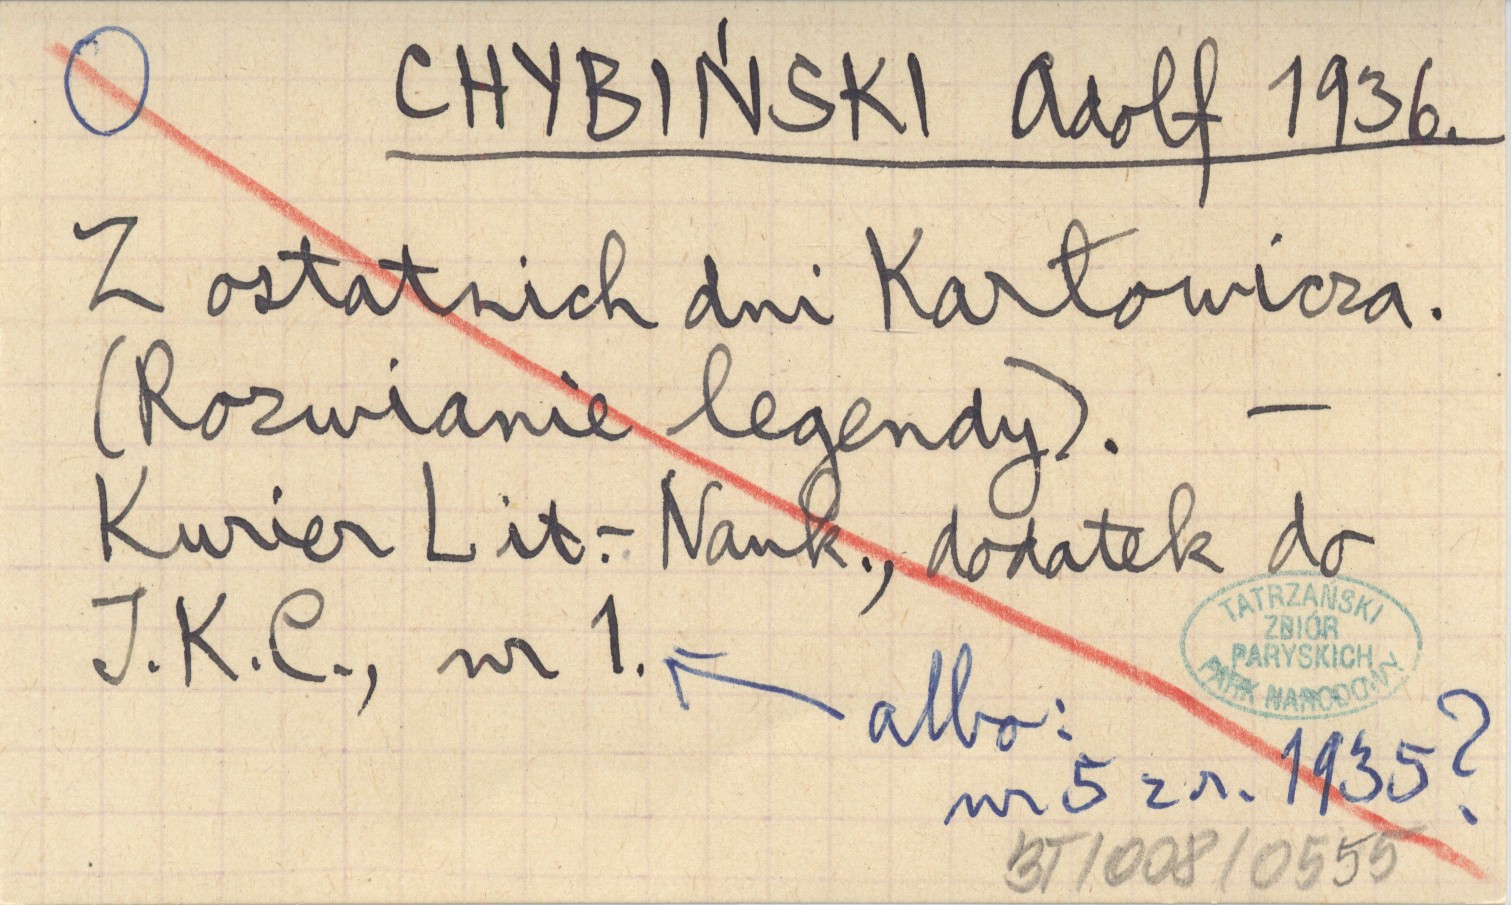 CHYBIŃSKI Adolf 1936.
Z ostatnich dni Karłowicza.
(Rozwianie legendy). —
Kurier Lit.-Nauk., dodatek do
I.K.C., nr 1.
albo:
nr 5 z r. 1935?
TATRZAŃSKI
ZBIÓR
PARYSKICH
PARK NARODOWY
BT/008/0555